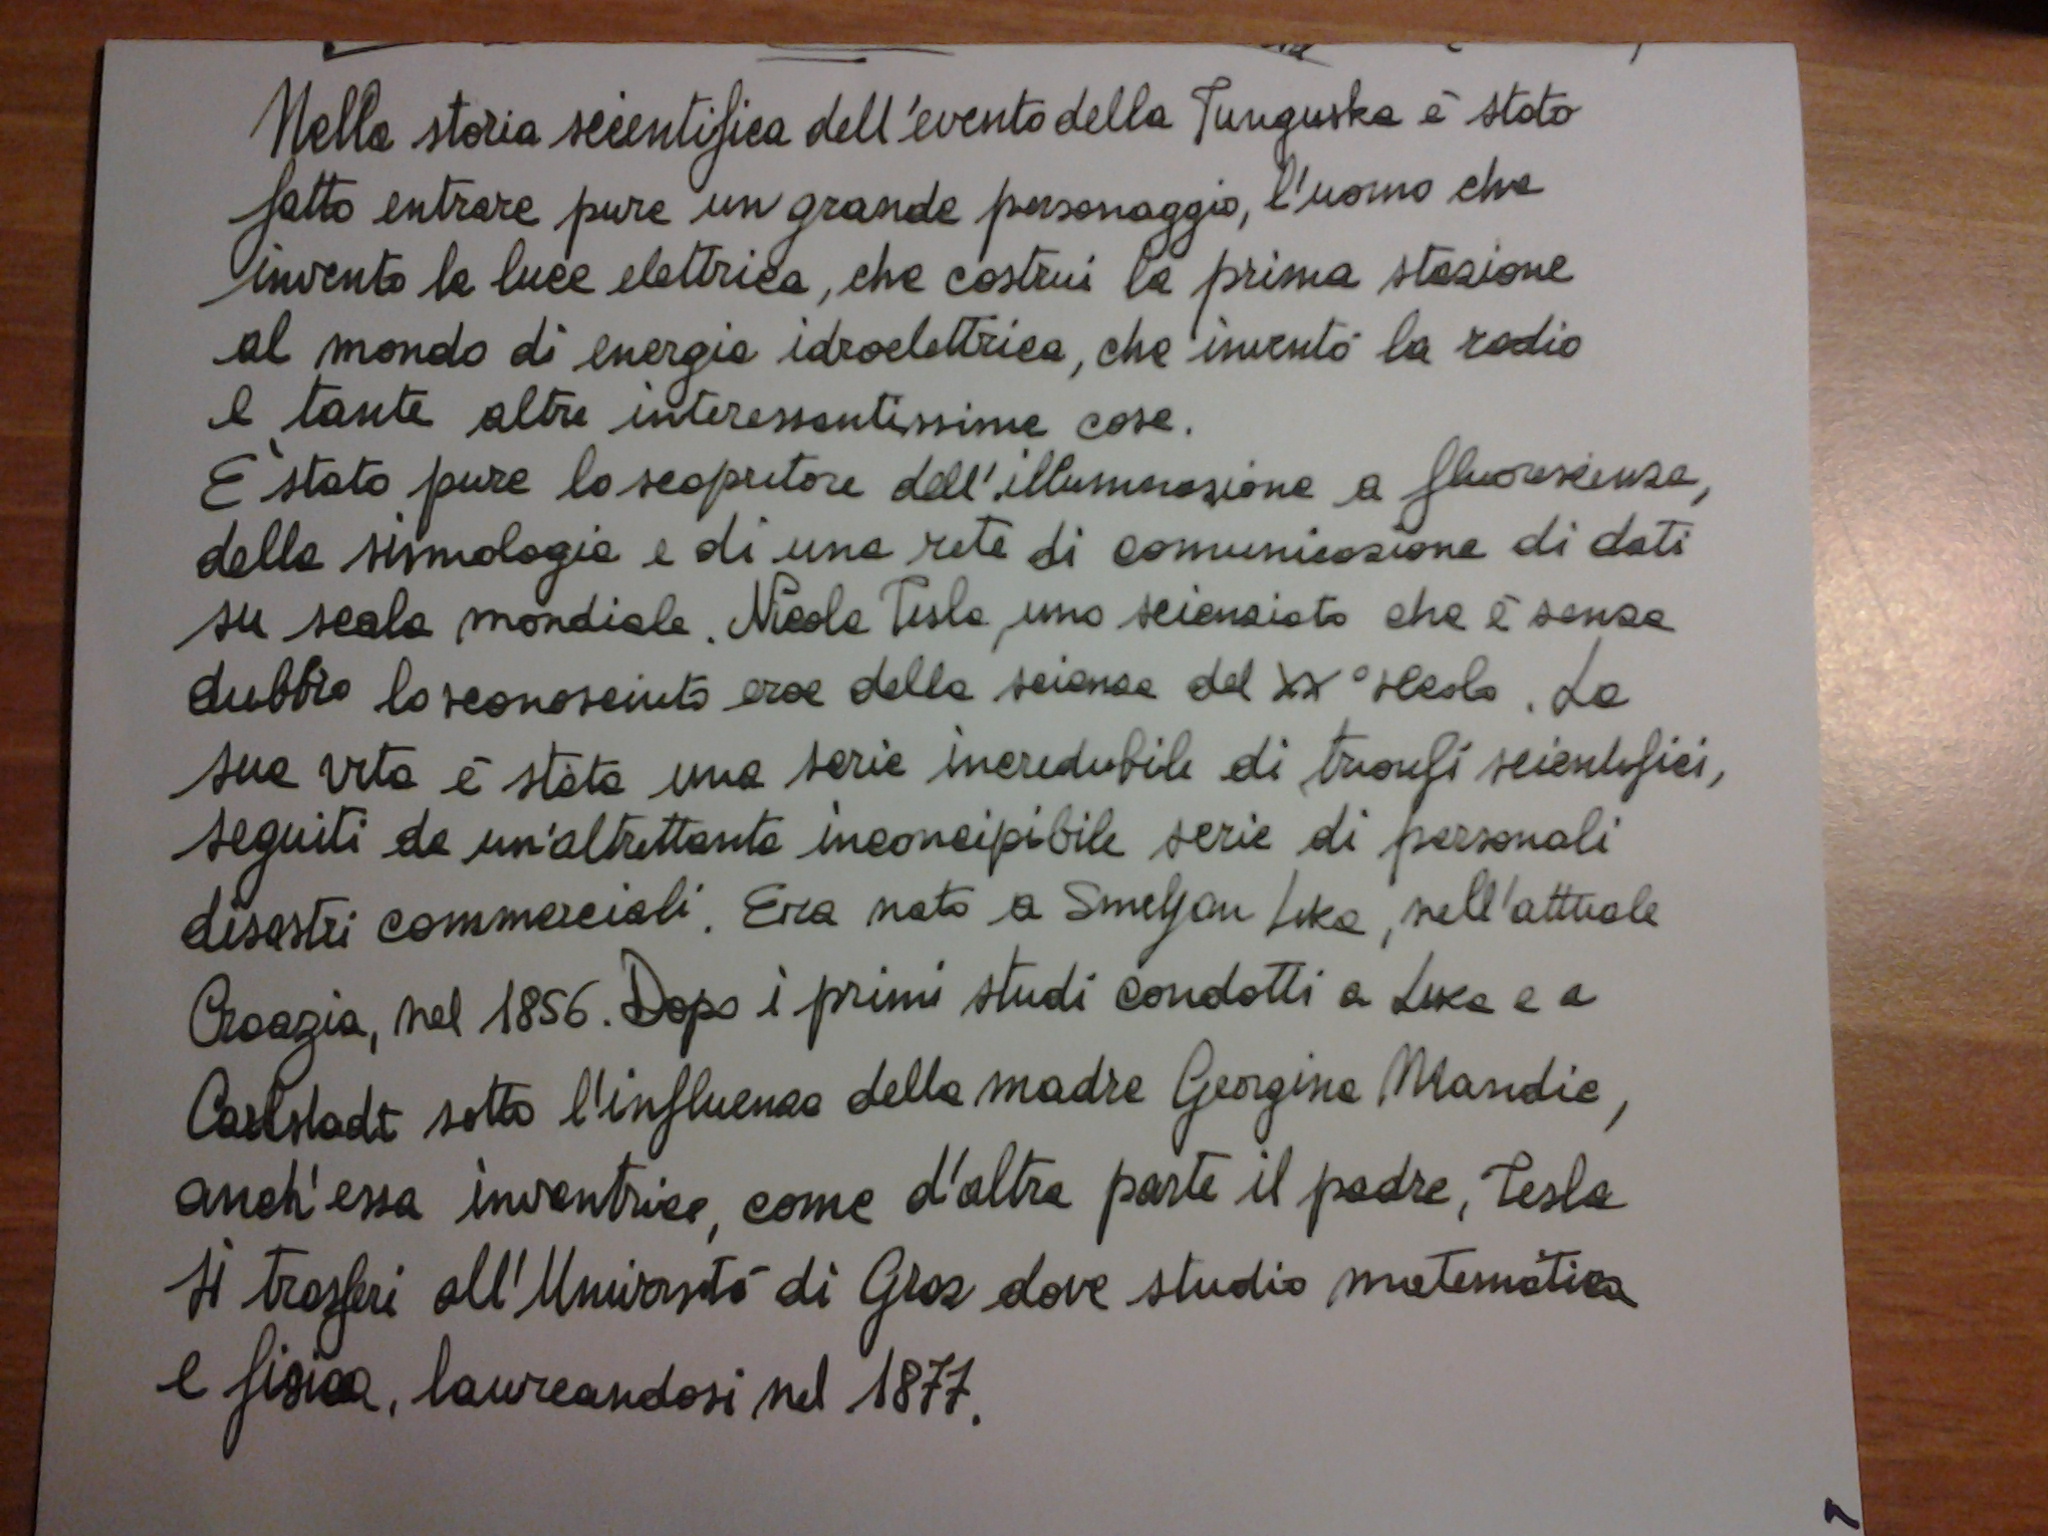 Nella storia scientifica dell'evento della Tunguska è stato
fatto entrare pure un grande personaggio, l'uomo che
invento la luce elettrica, che costrui la prima stazione
al mondo di energia idroelettrica, che inventò la radio
e tante altre interessantissime cose.
E' stato pure lo scopritore dell'illuminazione a fluorescenza,
della sismologia e di una rete di comunicazione di dati
su scala mondiale. Nicola Tesla, uno scienziato che è senza
dubbio lo sconosciuto eroe della scienza del XX° secolo. La
sua vita è stata una serie incredibile di trionfi scientifici,
seguiti da un'altrettanto inconcipibile serie di personali
disastri commerciali. Era nato a Smelyan Lika, nell'attuale
Croazia, nel 1856. Dopo i primi studi condotti a Lika e a
Carlstadt sotto l'influenza della madre Georgina Mandic,
anch'essa inventrice, come d'altra parte il padre, Tesla
si trasferi all'Università di Graz dove studio matematica
e fisica, laureandosi nel 1877.